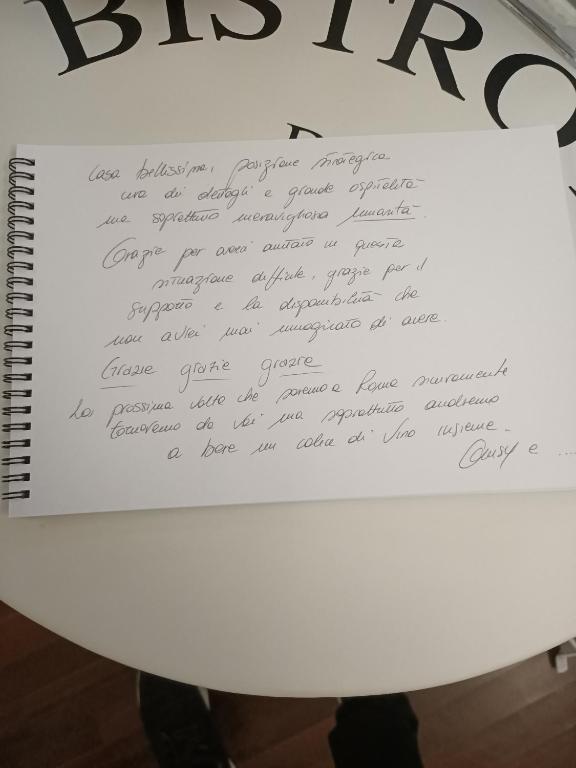 BISTRO
Casa bellissima, posizione strategica
cura di dettagli e grande ospitalità
ma soprattutto meravigliosa umanità.
Grazie per averci aiutato in questa
situazione difficile, grazie per il
supporto e la disponibilità che
non avrei mai immaginato di avere.
Grazie grazie grazie
La prossima volta che saremo a Roma sicuramente
torneremo da voi ma soprattutto andremo
a bere un calice di vino insieme.
e ....